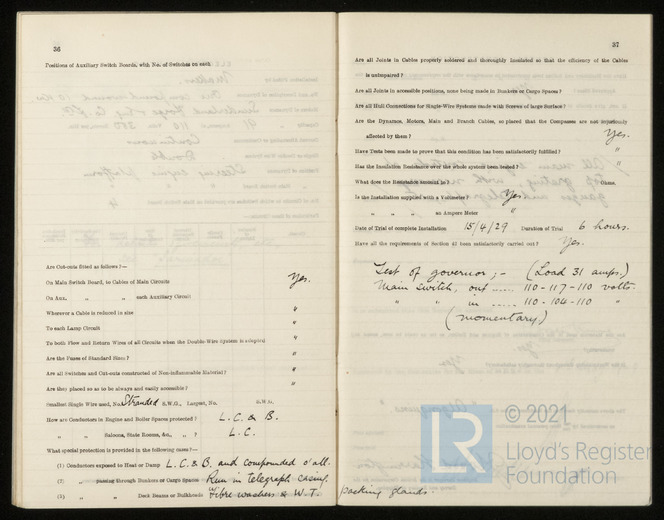 36
Positions of Auxiliary Switch Boards, with No. of Switches on each
Are Cut-outs fitted as follows?—
On Main Switch Board, to Cables of Main Circuits Yes.
On Aux. " " each Auxiliary Circuit "
Wherever a Cable is reduced in size "
To each Lamp Circuit "
To both Flow and Return Wires of all Circuits when the Double-Wire System is adopted "
Are the Fuses of Standard Sizes? "
Are all Switches and Cut-outs constructed of Non-inflammable Material? "
Are they placed so as to be always and easily accessible? "
Smallest Single Wire used, No. Stranded S.W.G., Largest, No. S.W.G.
How are Conductors in Engine and Boiler Spaces protected? L.C. & B.
" " Saloons, State Rooms, &c., " ? L.C.
What special protection is provided in the following cases?—
(1) Conductors exposed to Heat or Damp L.C. & B. and compounded o'all.
(2) " passing through Bunkers or Cargo Spaces Run in telegraph casing.
(3) " " Deck Beams or Bulkheads Fibre washers & W.T. packing glands.
37
Are all Joints in Cables properly soldered and thoroughly insulated so that the efficiency of the Cables
is unimpaired?
Are all Joints in accessible positions, none being made in Bunkers or Cargo Spaces?
Are all Hull Connections for Single-Wire Systems made with Screws of large Surface?
Are the Dynamos, Motors, Main and Branch Cables, so placed that the Compasses are not injuriously
affected by them? Yes.
Have Tests been made to prove that this condition has been satisfactorily fulfilled? "
Has the Insulation Resistance over the whole system been tested? "
What does the Resistance amount to? Ohms.
Is the Installation supplied with a Voltmeter? Yes
" " " an Ampere Meter "
Date of Trial of complete Installation 15/4/29 Duration of Trial 6 hours.
Have all the requirements of Section 42 been satisfactorily carried out? Yes.
Test of governor;- (Load 31 amps.)
Main Switch, out ..... 110-117-110 volts.
" " in ..... 110-104-110 "
(momentary.)
© 2021
LR
Lloyd's Register
Foundation